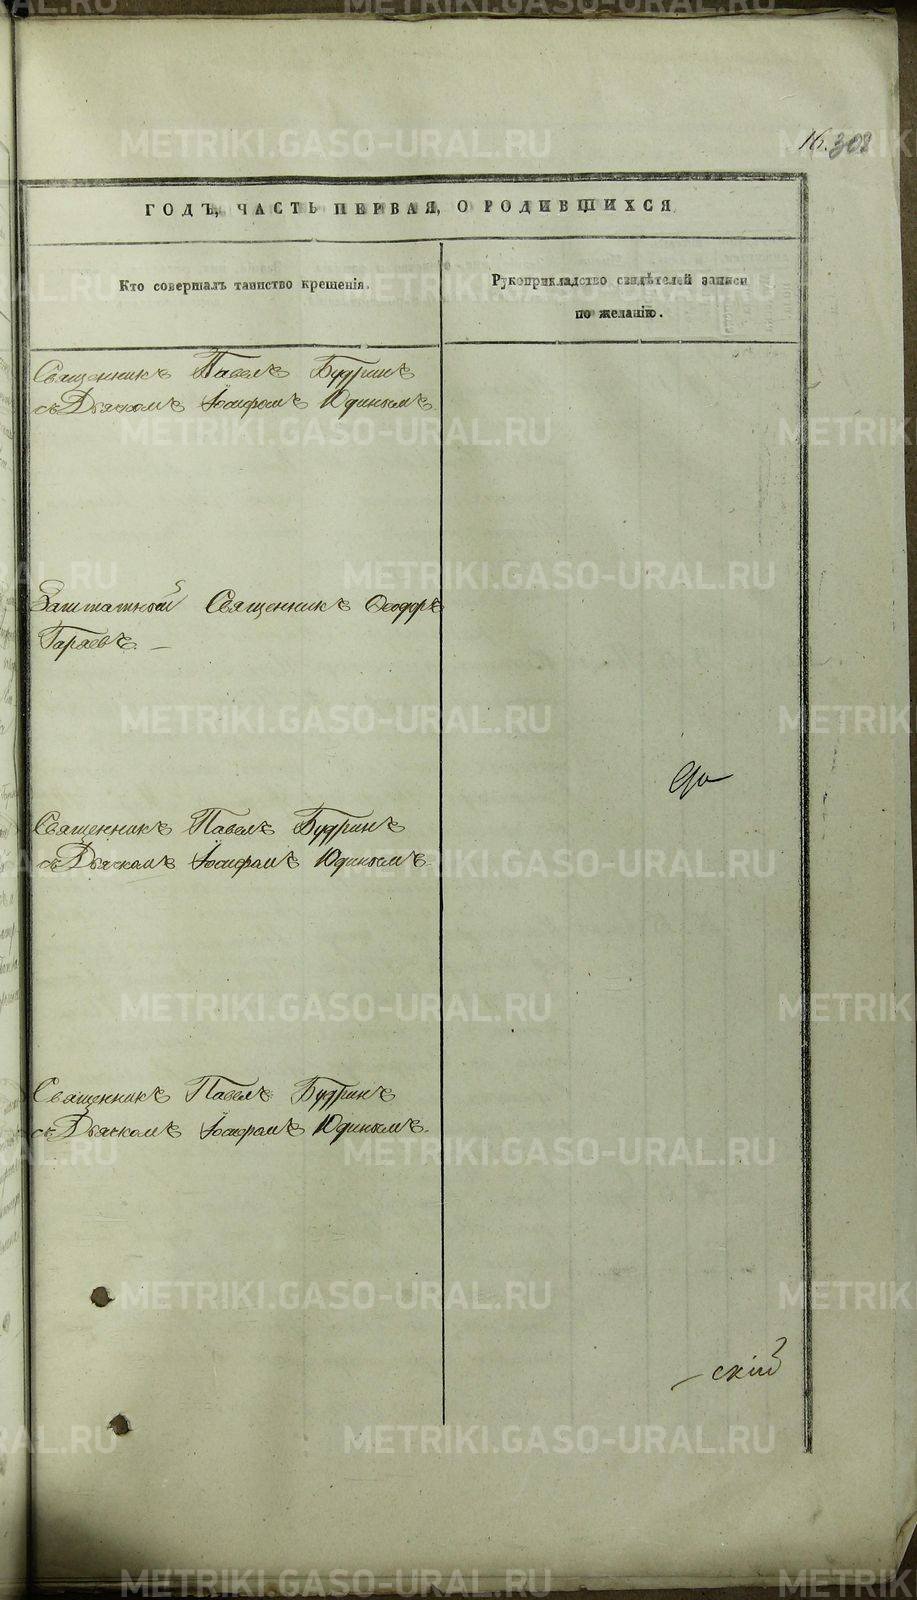 16. 302
ГОДЪ, ЧАСТЬ ПЕРВАЯ, О РОДИВШИХСЯ
Кто совершалъ таинство крещенія.
Рукоприкладство свидѣтелей записи
по желанію.
Священникъ Павелъ Будринъ
съ Дьячкомъ Іосифомъ Юдинымъ.
Заштатной Священникъ Ѳеодоръ
Гаряевъ. —
Священникъ Павелъ Будринъ
съ Дьячкомъ Іосифомъ Юдинымъ.
Священникъ Павелъ Будринъ
съ Дьячкомъ Іосифомъ Юдинымъ.
— скій
METRIKI.GASO-URAL.RU